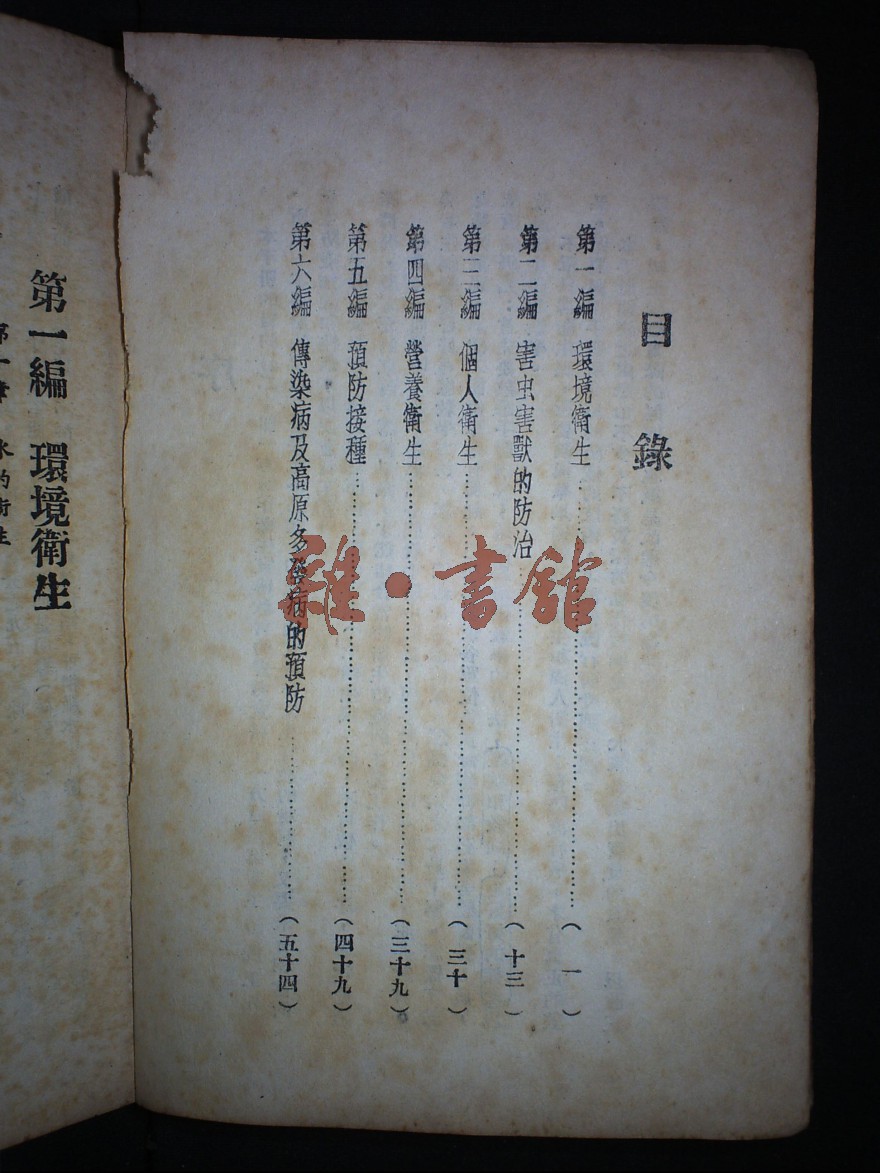 目錄
第一編 環境衛生………………(一)
第二編 害虫害獸的防治………………(十三)
第三編 個人衛生………………(三十)
第四編 營養衛生………………(三十九)
第五編 預防接種………………(四十九)
第六編 傳染病及高原多發病的預防………………(五十四)
雜·書館
第一編 環境衛生
第一章 水的衛生